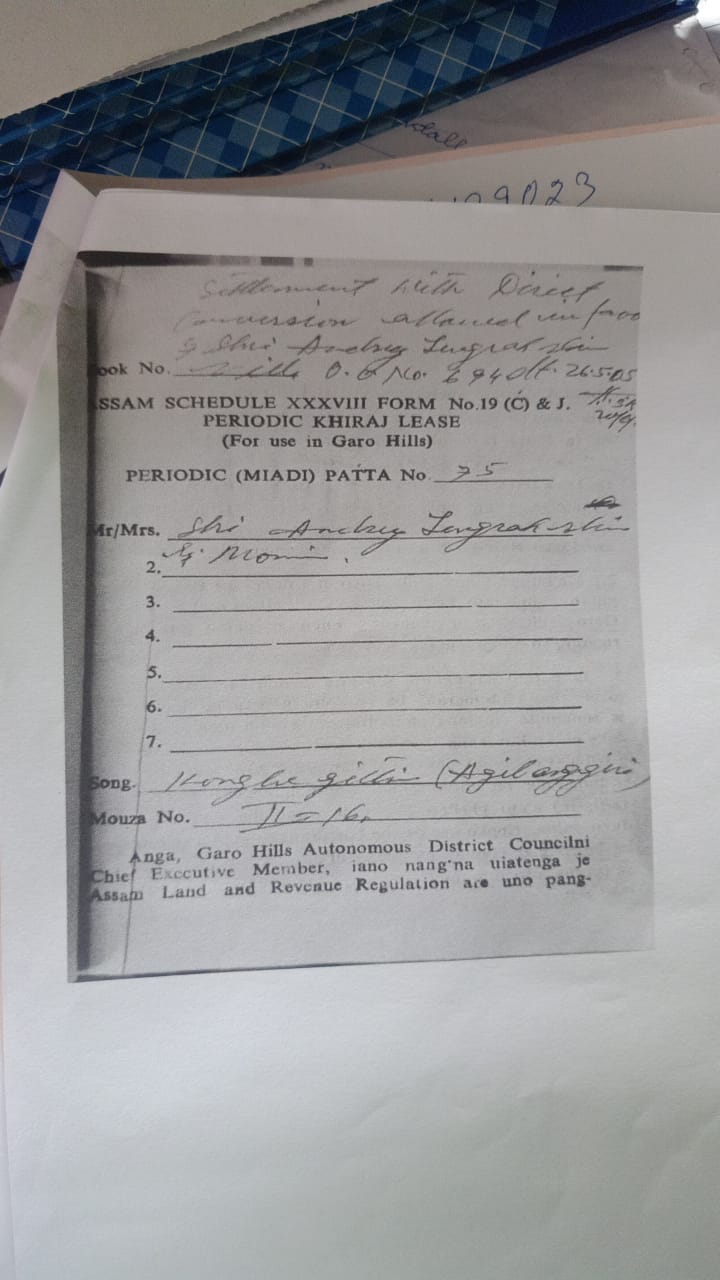 dall
29023
Settlement with Direct
Conversion allowed in favo
of Shri Andrey
ook No. Vide O. No. 694 dt. 26.5.05
ASSAM SCHEDULE XXXVIII FORM No.19 (C) & J.
PERIODIC KHIRAJ LEASE
(For use in Garo Hills)
PERIODIC (MIADI) PATTA No 75
Mr/Mrs. Shri Andrey
2. Momin.
3.
4.
5.
6.
7.
Song.
Mouza No. II-16,
Anga, Garo Hills Autonomous District Councilni
Chief Executive Member, iano nang'na uiatenga je
Assam Land and Revenue Regulation are uno pang-